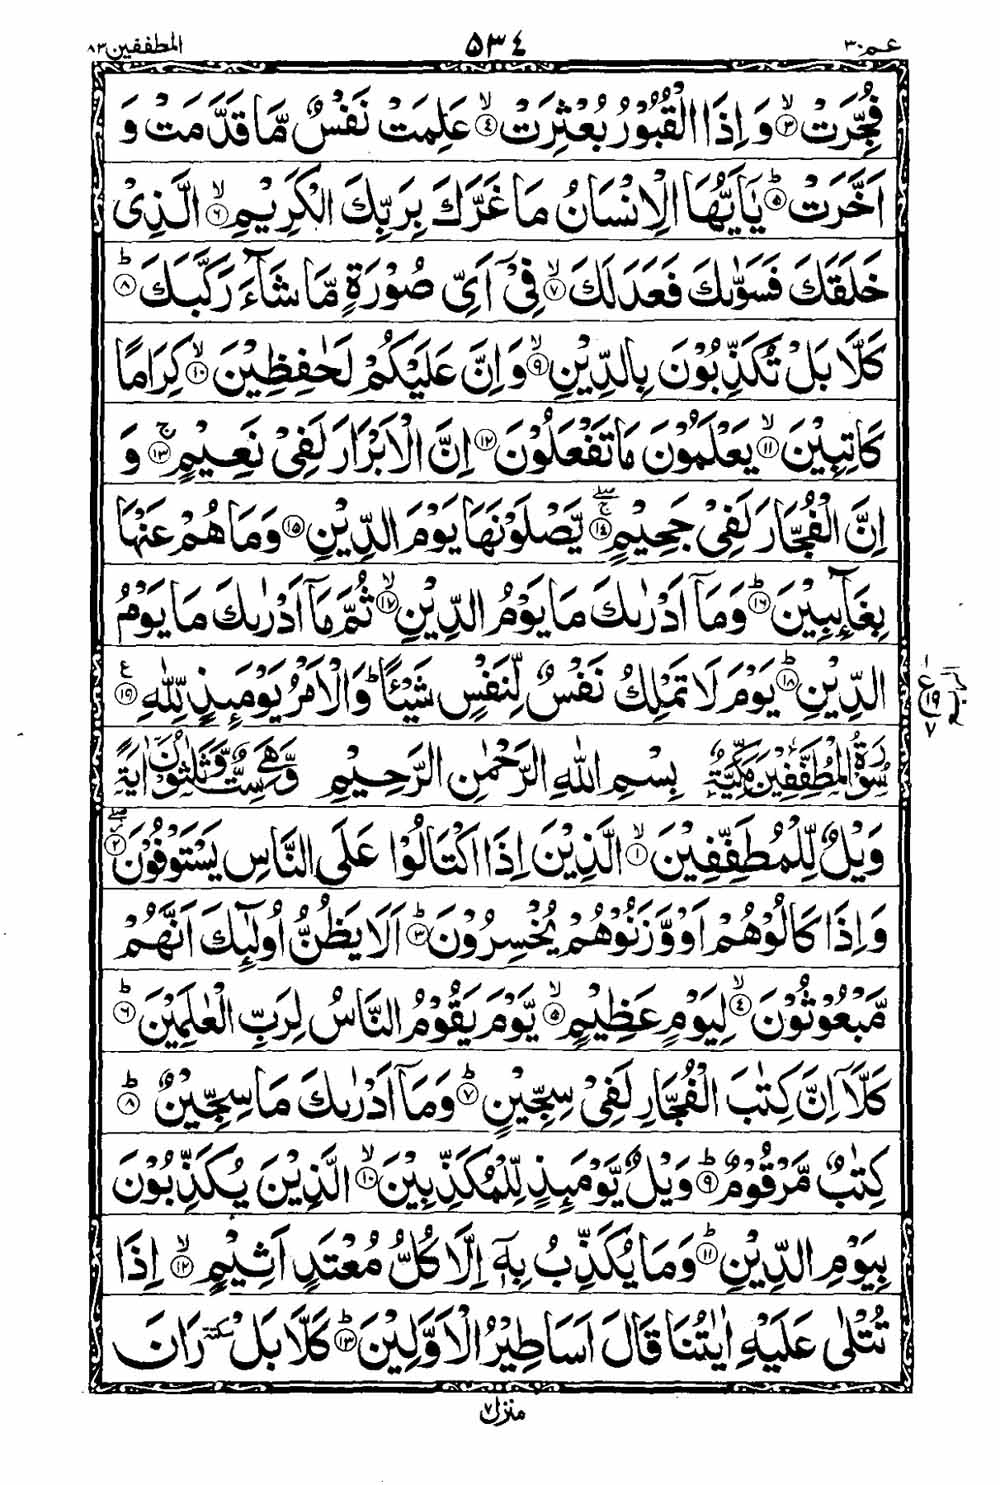 عم ٣٠ ٥٣٤ المطففين ٨٣
فُجِّرَتْ ۙ﴿٣﴾ وَ اِذَا الْقُبُوْرُ بُعْثِرَتْ ۙ﴿٤﴾ عَلِمَتْ نَفْسٌ مَّا قَدَّمَتْ وَ
اَخَّرَتْ ؕ﴿٥﴾ يٰۤاَيُّهَا الْاِنْسَانُ مَا غَرَّكَ بِرَبِّكَ الْكَرِيْمِ ۙ﴿٦﴾ الَّذِيْ
خَلَقَكَ فَسَوّٰىكَ فَعَدَلَكَ ۙ﴿٧﴾ فِيْۤ اَيِّ صُوْرَةٍ مَّا شَآءَ رَكَّبَكَ ؕ﴿٨﴾
كَلَّا بَلْ تُكَذِّبُوْنَ بِالدِّيْنِ ۙ﴿٩﴾ وَ اِنَّ عَلَيْكُمْ لَحٰفِظِيْنَ ۙ﴿١٠﴾ كِرَامًا
كَاتِبِيْنَ ۙ﴿١١﴾ يَعْلَمُوْنَ مَا تَفْعَلُوْنَ ﴿١٢﴾ اِنَّ الْاَبْرَارَ لَفِيْ نَعِيْمٍ ۚ﴿١٣﴾ وَ
اِنَّ الْفُجَّارَ لَفِيْ جَحِيْمٍ ۚۖ﴿١٤﴾ يَّصْلَوْنَهَا يَوْمَ الدِّيْنِ ﴿١٥﴾ وَمَا هُمْ عَنْهَا
بِغَآئِبِيْنَ ؕ﴿١٦﴾ وَمَاۤ اَدْرٰىكَ مَا يَوْمُ الدِّيْنِ ۙ﴿١٧﴾ ثُمَّ مَاۤ اَدْرٰىكَ مَا يَوْمُ
الدِّيْنِ ؕ﴿١٨﴾ يَوْمَ لَا تَمْلِكُ نَفْسٌ لِّنَفْسٍ شَيْـًٔا ؕ وَالْاَمْرُ يَوْمَئِذٍ لِّلّٰهِ ﴿١٩﴾ ع
ع ١ ١٩ ٧
سُوْرَةُ الْمُطَفِّفِيْنَ مَكِّيَّةٌ بِسْمِ اللهِ الرَّحْمٰنِ الرَّحِيْمِ وَّهِيَ سِتٌّ وَّثَلٰثُوْنَ اٰيَةً
وَيْلٌ لِّلْمُطَفِّفِيْنَ ۙ﴿١﴾ الَّذِيْنَ اِذَا اكْتَالُوْا عَلَى النَّاسِ يَسْتَوْفُوْنَ ۖ﴿٢﴾
وَ اِذَا كَالُوْهُمْ اَوْ وَّزَنُوْهُمْ يُخْسِرُوْنَ ؕ﴿٣﴾ اَلَا يَظُنُّ اُولٰٓئِكَ اَنَّهُمْ
مَّبْعُوْثُوْنَ ۙ﴿٤﴾ لِيَوْمٍ عَظِيْمٍ ۙ﴿٥﴾ يَّوْمَ يَقُوْمُ النَّاسُ لِرَبِّ الْعٰلَمِيْنَ ؕ﴿٦﴾
كَلَّاۤ اِنَّ كِتٰبَ الْفُجَّارِ لَفِيْ سِجِّيْنٍ ؕ﴿٧﴾ وَمَاۤ اَدْرٰىكَ مَا سِجِّيْنٌ ؕ﴿٨﴾
كِتٰبٌ مَّرْقُوْمٌ ؕ﴿٩﴾ وَيْلٌ يَّوْمَئِذٍ لِّلْمُكَذِّبِيْنَ ۙ﴿١٠﴾ الَّذِيْنَ يُكَذِّبُوْنَ
بِيَوْمِ الدِّيْنِ ؕ﴿١١﴾ وَمَا يُكَذِّبُ بِهٖۤ اِلَّا كُلُّ مُعْتَدٍ اَثِيْمٍ ۙ﴿١٢﴾ اِذَا
تُتْلٰى عَلَيْهِ اٰيٰتُنَا قَالَ اَسَاطِيْرُ الْاَوَّلِيْنَ ؕ﴿١٣﴾ كَلَّا بَلْ سكتة رَانَ
منزل ٧